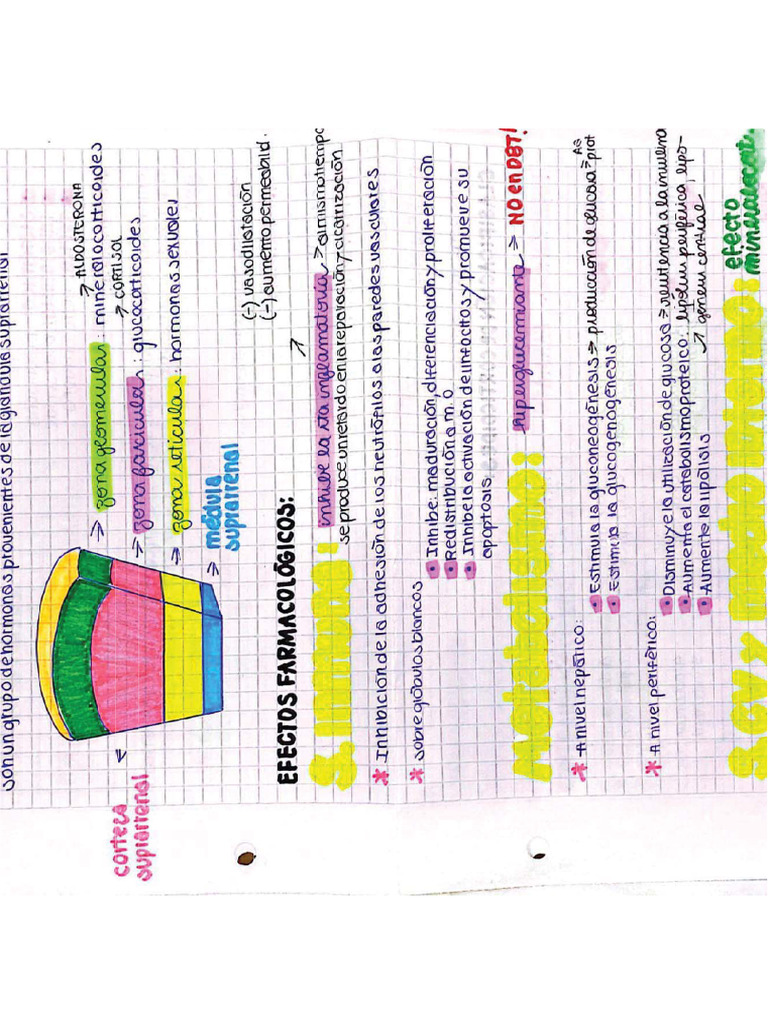 son un grupo de hormonas provenientes de la glándula suprarrenal
corteza
suprarrenal
→ ALDOSTERONA
→ zona glomerular: mineralocorticoides
→ CORTISOL
→ zona fascicular: glucocorticoides
→ zona reticular: hormonas sexuales
→ médula
suprarrenal
EFECTOS FARMACOLÓGICOS:
(-) vasodilatación
(-) aumento permeabilid.
S. Inmune: inhibe la rta inflamatoria → al mismo tiempo
se produce un retardo en la reparación y cicatrización
* Inhibición de la adhesión de los neutrófilos a las paredes vasculares
* sobre glóbulos blancos
Inhibe: maduración, diferenciación y proliferación
Redistribución a m. o
Inhibe la activación de linfocitos y promueve su
apoptosis.
Metabolismo: hiperglucemiante → NO en DBT!
* A nivel hepático:
Estimula la gluconeogénesis → producción de glucosa → prot
AG
Estimula la glucogenogénesis
* A nivel periférico:
Disminuye la utilización de glucosa → resistencia a la insulina
Aumenta el catabolismo proteico: lipólisis periférica, lipo-
Aumenta la lipólisis
→ génesis central
S. CV y medio interno: efecto
mineralocort.